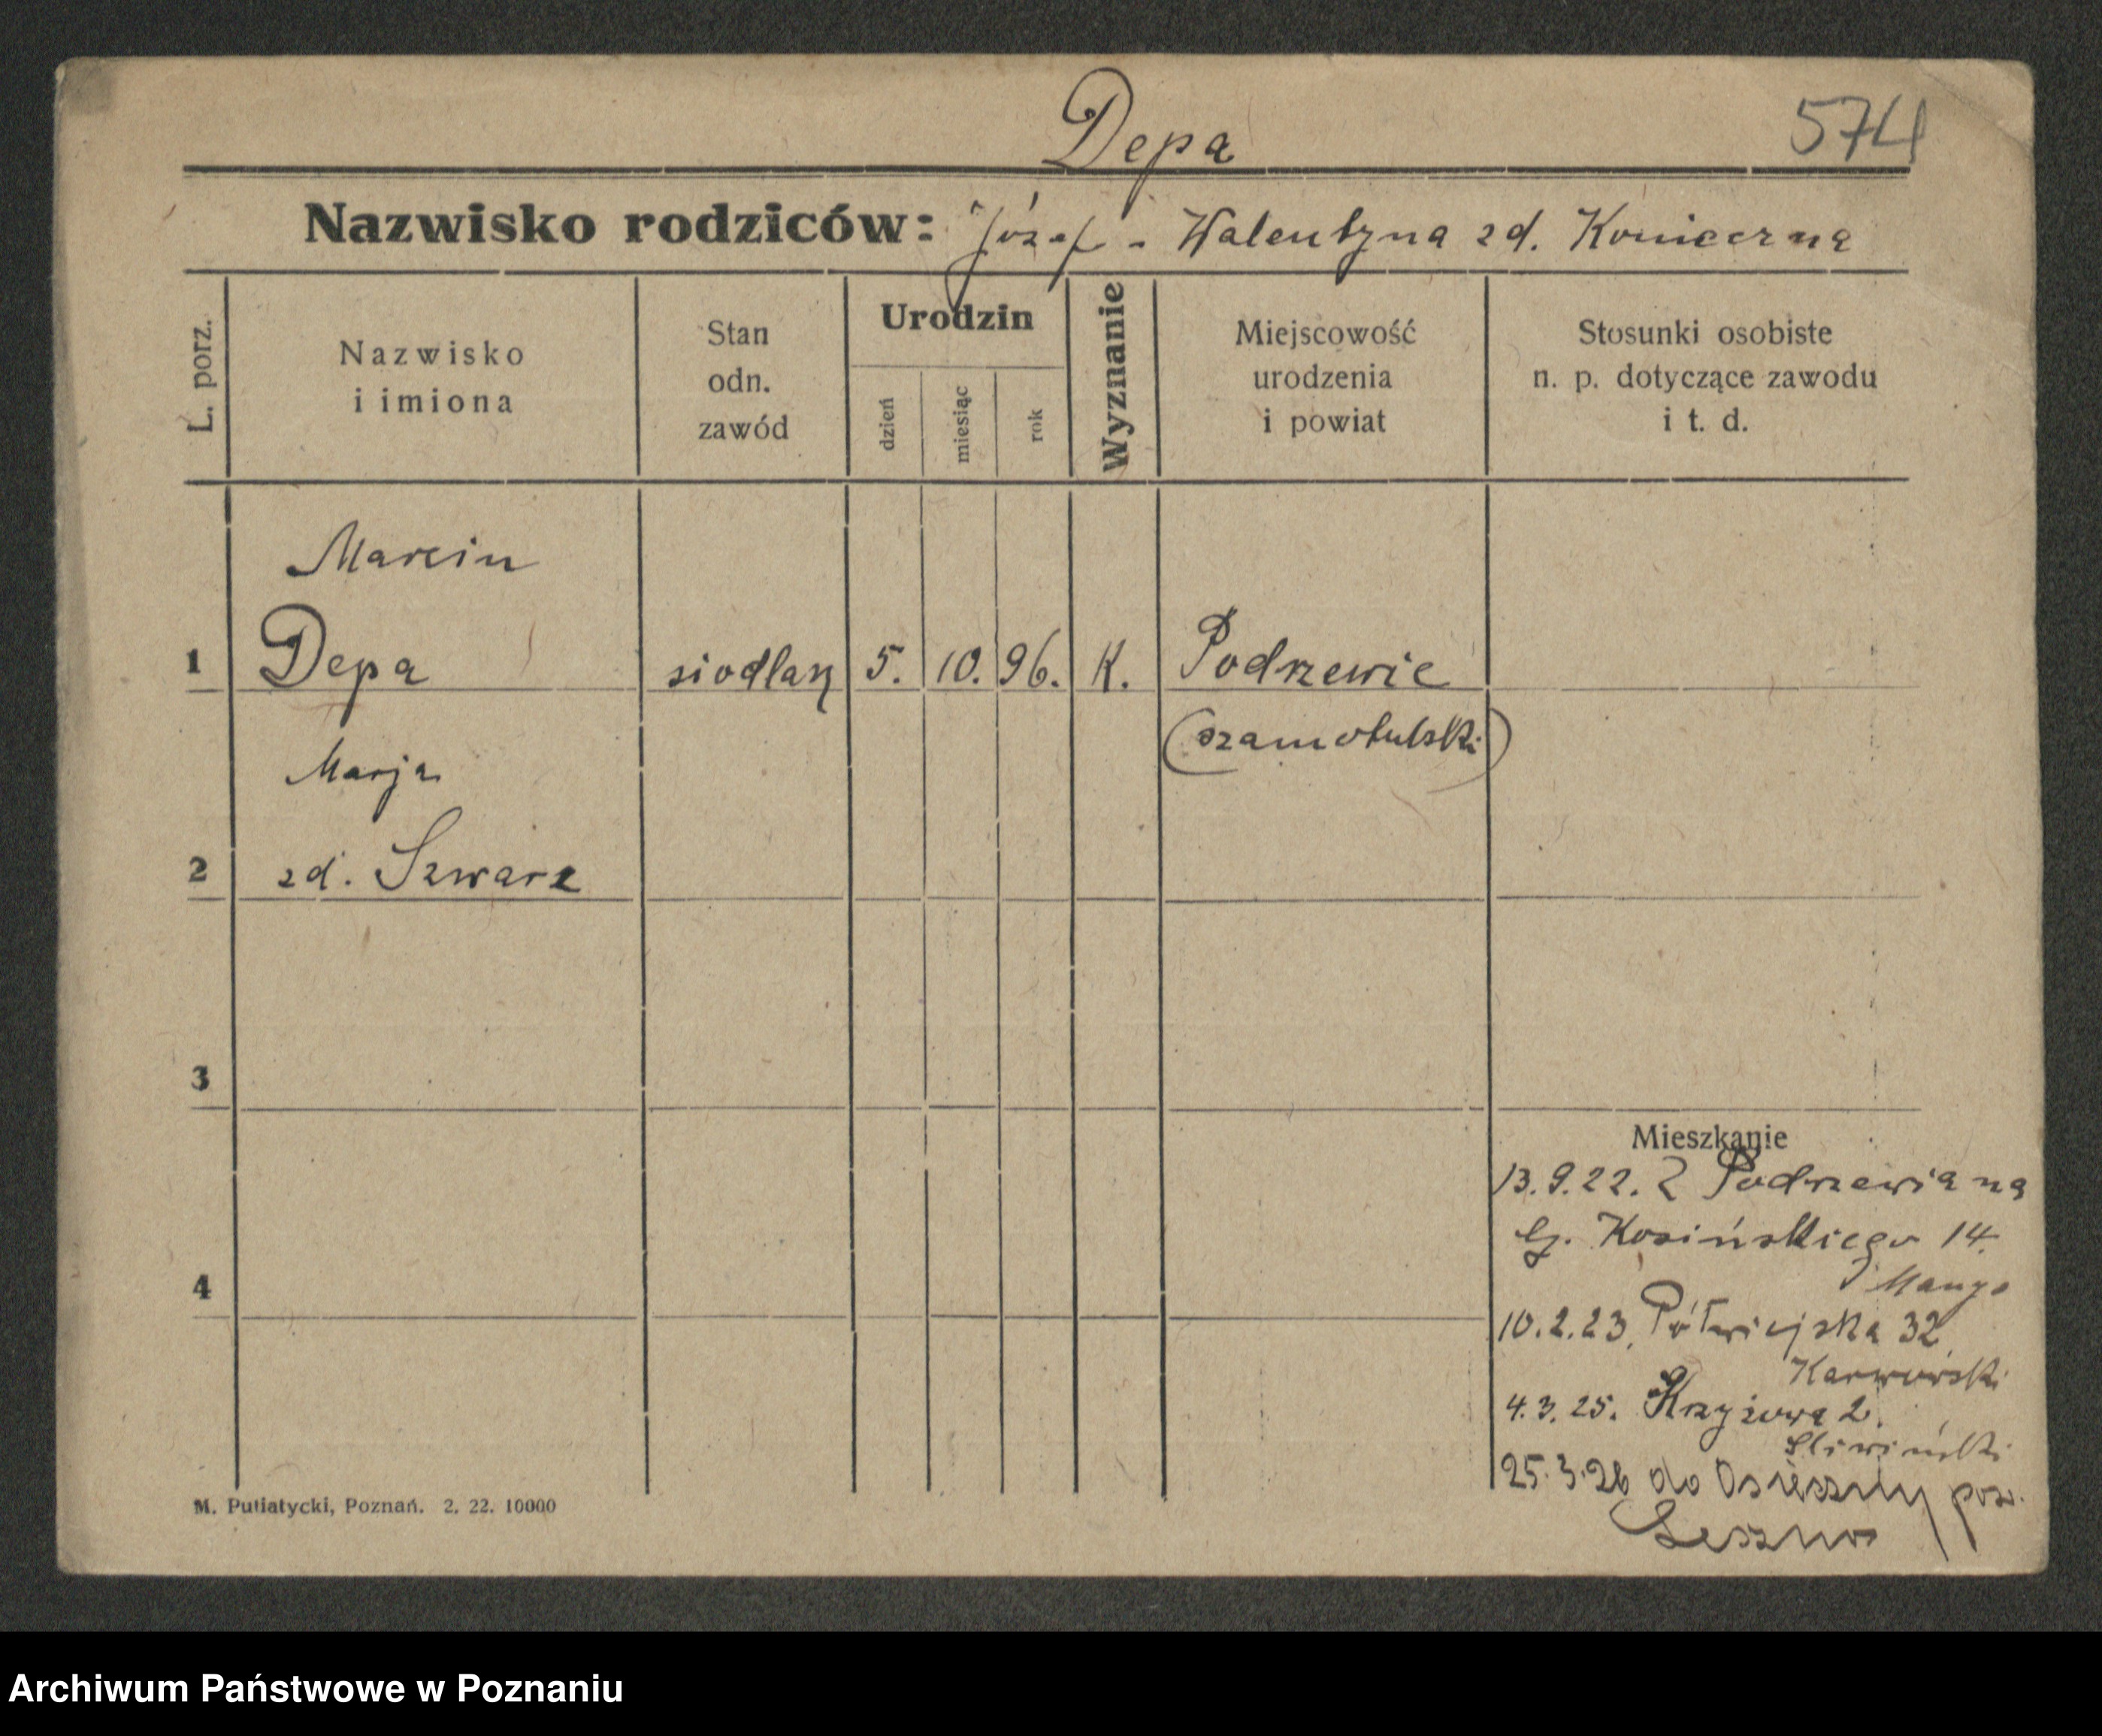 Depa
574
Nazwisko rodziców: Józef - Walentyna zd. Konieczna
L. porz.
Nazwisko
i imiona
Stan
odn.
zawód
Urodzin
dzień
miesiąc
rok
Wyznanie
Miejscowość
urodzenia
i powiat
Stosunki osobiste
n. p. dotyczące zawodu
i t. d.
Marcin
1 Depa siodlarz 5. 10. 96. K. Podrzewie
(szamotulski)
Marja
2 zd. Szwarz
3
Mieszkanie
13.9.22. Z Podrzewia na
Kosińskiego 14.
4
10.2.23. Półwiejska 32
Karwowski
4.3.25. Krzyżowa 2.
Śliwiński
25.3.26 do Osieczny pow.
Leszno
M. Putiatycki, Poznań. 2. 22. 10000
Archiwum Państwowe w Poznaniu